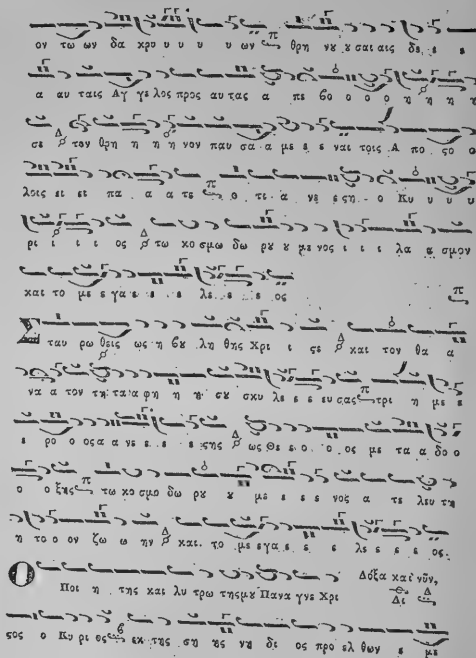 ον τω ων δα κρυ υ υ υ υων π θρη νȣ ȣ σαι αις δε ε ε
α αυ ταις Αγ γε λος προς αυτας α πε βο ο ο ο η η η
σε Δ τον θρη η η η νον παυ σα α με ε ε ναι τοις Α πο ςο ο
λοις ει ει πα α α τε π ο τι α νε ςη ο Κυ υ υ υ
ρι ι ι ι ος Δ τω κο σμω δω ρȣ ȣ με νος ι ι ι λα α σμον
και το με ε γα ε ε ε λε ε ε ος
π
Σταυ ρω θεις ως η βȣ λη θης Χρι ι ςε Δ και τον θα α
να α τον τη τα α φη η η σȣ σκυ λε ε ε ευ σας π τρι η με ε
ε ρο ο ος α α νε ε ε ε ςης Δ ως Θε ε ο ο ος με τα α δο ο
ο ο ξης π τω κο σμο δω ρȣ ȣ με ε ε ε νος α τε λευ τη
η το ο ον ζω ω ην Δ και το με γα ε ε ε λε ε ε ε ος
Δόξα και νῦν,
Ο Ποι η της και λυ τρω της μȣ Πανα γνε Χρι
ςος ο Κυ ρι ος εκ της ση ης νη δυ ος προ ελ θων ε με